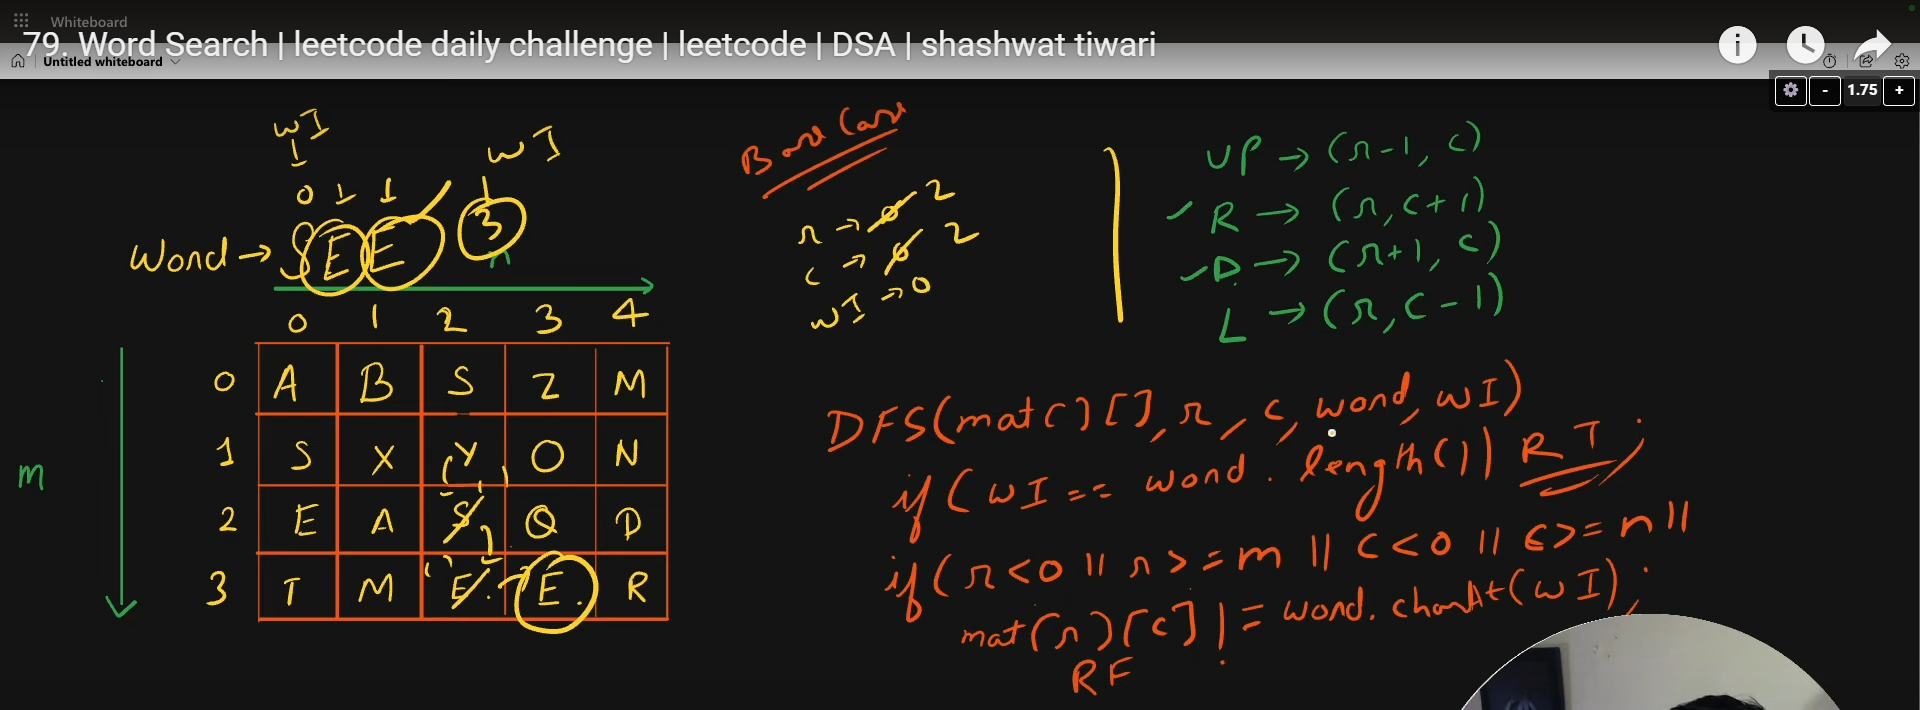 Whiteboard
79. Word Search | leetcode daily challenge | leetcode | DSA | shashwat tiwari
Untitled whiteboard
- 1.75 +
wI
wI
0 1 1
Word → SEE 3
n
0 1 2 3 4
0 A B S Z M
1 S X Y O N
2 E A S Q D
3 T M E E R
m
Base Case
r → 0 2
c → 0 2
wI → 0
UP → (r-1, c)
R → (r, c+1)
D → (r+1, c)
L → (r, c-1)
DFS(mat[][], r, c, word, wI)
if(wI == word.length()) RT;
if(r<0 || r>=m || c<0 || c>=n ||
mat[r][c] != word.charAt(wI);
RF